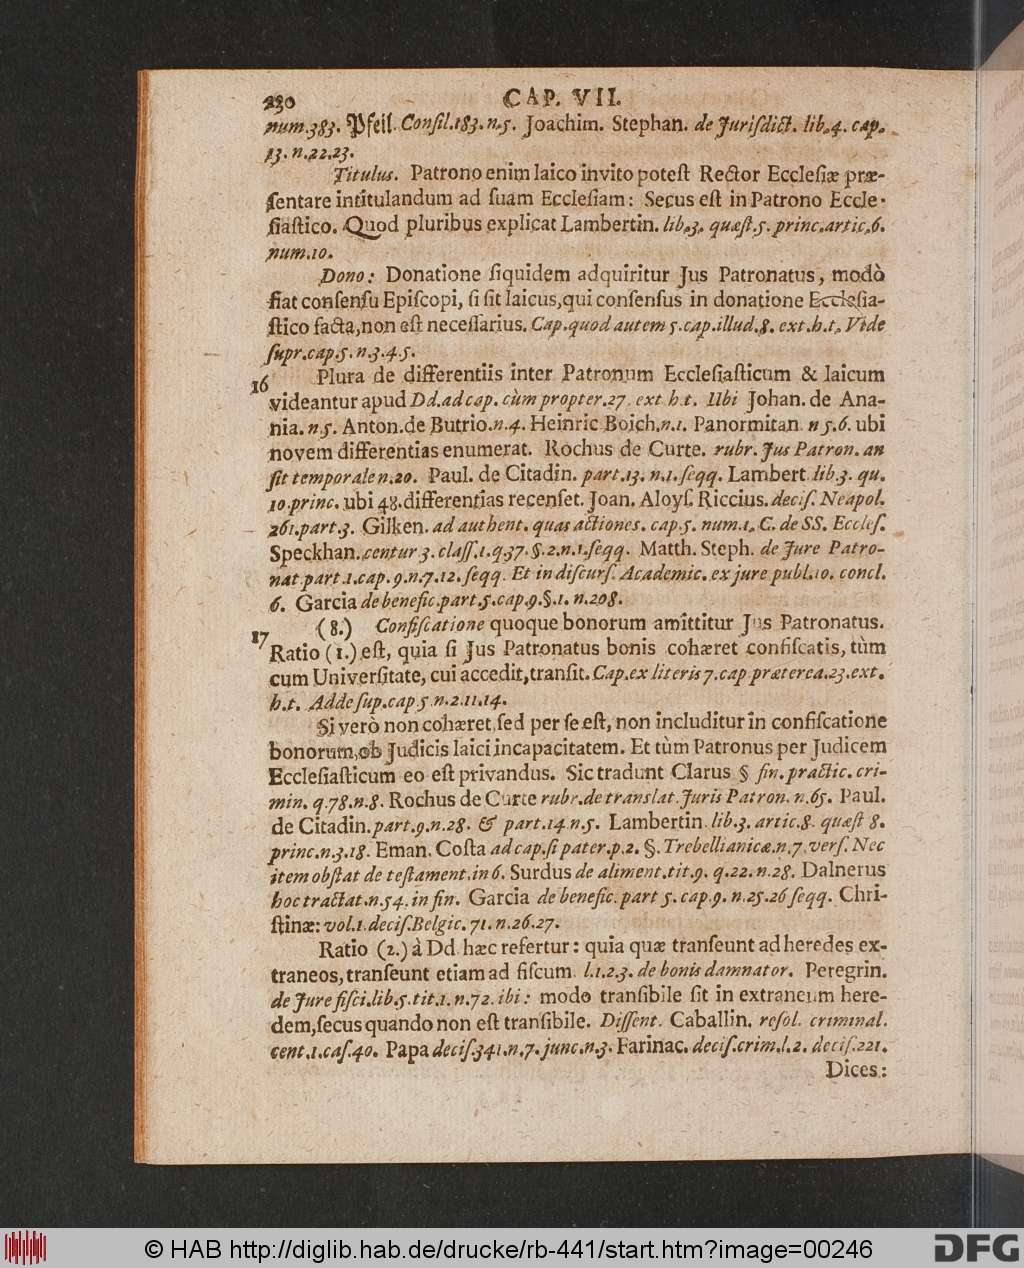 230 CAP. VII.
num.383. Pfeil. Consil.183. n.5. Joachim. Stephan. de Jurisdict. lib.4. cap.
13. n.22.23.
Titulus. Patrono enim laico invito potest Rector Ecclesiæ præ-
sentare intitulandum ad suam Ecclesiam: Secus est in Patrono Eccle-
siastico. Quod pluribus explicat Lambertin. lib.3. quæst.5. princ.artic.6.
num.10.
Dono: Donatione siquidem adquiritur Jus Patronatus, modò
fiat consensu Episcopi, si sit laicus, qui consensus in donatione Ecclesia-
stico facta, non est necessarius. Cap.quod autem 5.cap.illud.8. ext.h.t. Vide
supr.cap.5.n.3.4.5.
16 Plura de differentiis inter Patronum Ecclesiasticum & laicum
videantur apud Dd.ad cap. cùm propter.27. ext h.t. Ubi Johan. de Ana-
nia. n.5. Anton.de Butrio.n.4. Heinric Boich.n.1. Panormitan. n 5.6. ubi
novem differentias enumerat. Rochus de Curte. rubr. Jus Patron. an
sit temporale n.20. Paul. de Citadin. part.13. n.1.seqq. Lambert. lib.3. qu.
10.princ. ubi 48.differentias recenset. Joan. Aloys. Riccius. decis. Neapol.
261.part.3. Gilken. ad authent. quas actiones. cap.5. num.1. C. de SS. Eccles.
Speckhan. centur 3. class.1.q.37. §.2.n.1.seqq. Matth. Steph. de Jure Patro-
nat part.1.cap.9.n.7.12.seqq. Et in discurs. Academic. ex jure publ.10. concl.
6. Garcia de benefic.part.5.cap.9.§.1. n.208.
17 (8.) Confiscatione quoque bonorum amittitur Jus Patronatus.
Ratio (1.) est, quia si Jus Patronatus bonis cohæret confiscatis, tùm
cum Universitate, cui accedit, transit. Cap.ex literis 7.cap præterea.23.ext.
h.t. Adde sup.cap 5 n.2.11.14.
Si verò non cohæret, sed per se est, non includitur in confiscatione
bonorum, ob Judicis laici incapacitatem. Et tùm Patronus per Judicem
Ecclesiasticum eo est privandus. Sic tradunt Clarus § fin. practic. cri-
min. q.78.n.8. Rochus de Curte rubr.de translat. Juris Patron. n.65. Paul.
de Citadin.part.9.n.28. & part.14.n.5. Lambertin. lib.3. artic.8. quæst 8.
princ.n.3.18. Eman. Costa ad cap.si pater.p.2. §. Trebellianicæ.n.7.vers. Nec
item obstat de testament. in 6. Surdus de aliment.tit.9. q.22. n.28. Dalnerus
hoc tractat. n.54. in fin. Garcia de benefic. part 5. cap.9. n.25.26 seqq. Chri-
stinæ: vol.1.decis.Belgic. 71. n.26.27.
Ratio (2.) à Dd. hæc refertur: quia quæ transeunt ad heredes ex-
traneos, transeunt etiam ad fiscum. l.1.2.3. de bonis damnator. Peregrin.
de Jure fisci.lib.5.tit.1.n.72. ibi: modo transibile sit in extraneum here-
dem, secus quando non est transibile. Dissent. Caballin. resol. criminal.
cent.1.cas.40. Papa decis.341.n.7. junc.n.3. Farinac. decis.crim.l.2. decis.221.
Dices:
© HAB http://diglib.hab.de/drucke/rb-441/start.htm?image=00246
DFG